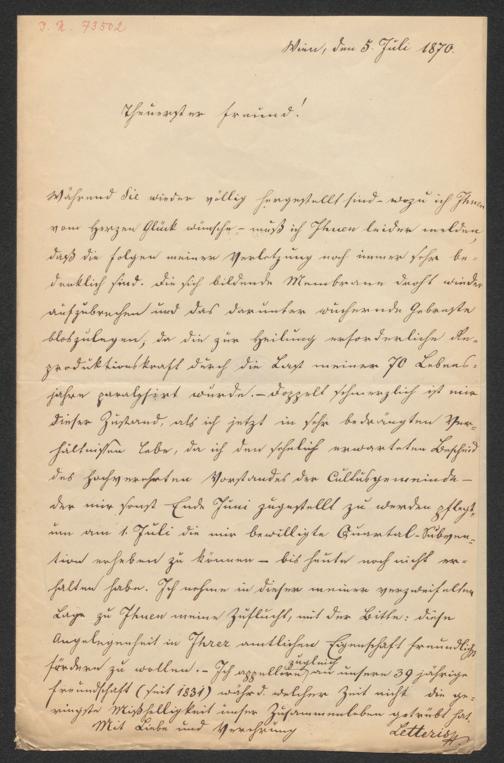 I. N. 73502
Wien, den 5. Juli 1870.
Theuerster Freund!
Während Sie wieder völlig hergestellt sind – wozu ich Ihnen
vom Herzen Glück wünsche – muß ich Ihnen leider melden,
daß die Folgen meiner Verletzung noch immer sehr be-
denklich sind. Die sich bildende Membrane droht wieder
aufzubrechen und das darunter wuchernde
bloszulegen, da die zur Heilung erforderliche Re-
produktionskraft durch die Last meiner 70 Lebens-
jahre paralysirt wurde. – Doppelt schmerzlich ist mir
dieser Zustand, als ich jetzt in sehr bedrängten Ver-
hältnissen lebe, da ich den sehnlich erwarteten Bescheid
des hochverehrten Vorstandes der Cultusgemeinde –
der mir sonst Ende Juni zugestellt zu werden pflegt,
um am 1. Juli die mir bewilligte Quartal-Subven-
tion erheben zu können – bis heute noch nicht er-
halten habe. Ich nehme in dieser meiner verzweifelten
Lage zu Ihnen meine Zuflucht, mit der Bitte: diese
Angelegenheit in Ihrer amtlichen Eigenschaft freundlichst
fördern zu wollen. – Ich appellire zugleich an unsere 39 jährige
Freundschaft (seit 1831) währd welcher Zeit nicht die ge-
ringste Mißhelligkeit unser Zusammenleben getrübt hat.
Mit Liebe und Verehrung Letteris